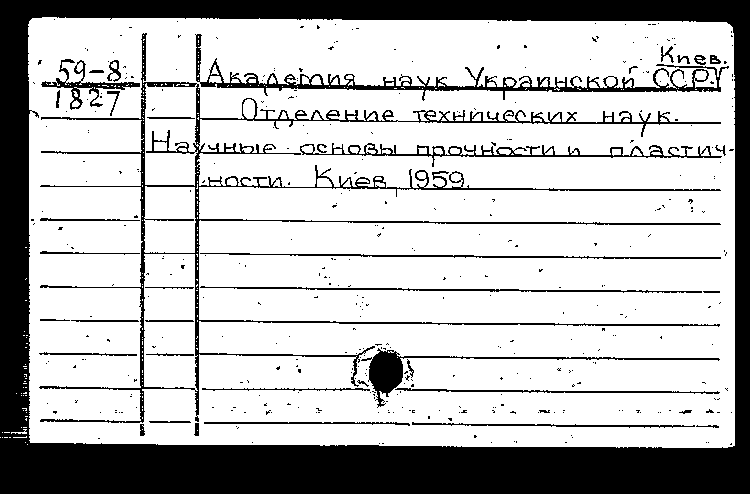 Киев.
59-8 Академия наук Украинской ССР.
1827 Отделение технических наук.
Научные основы прочности и пластич-
ности. Киев, 1959.